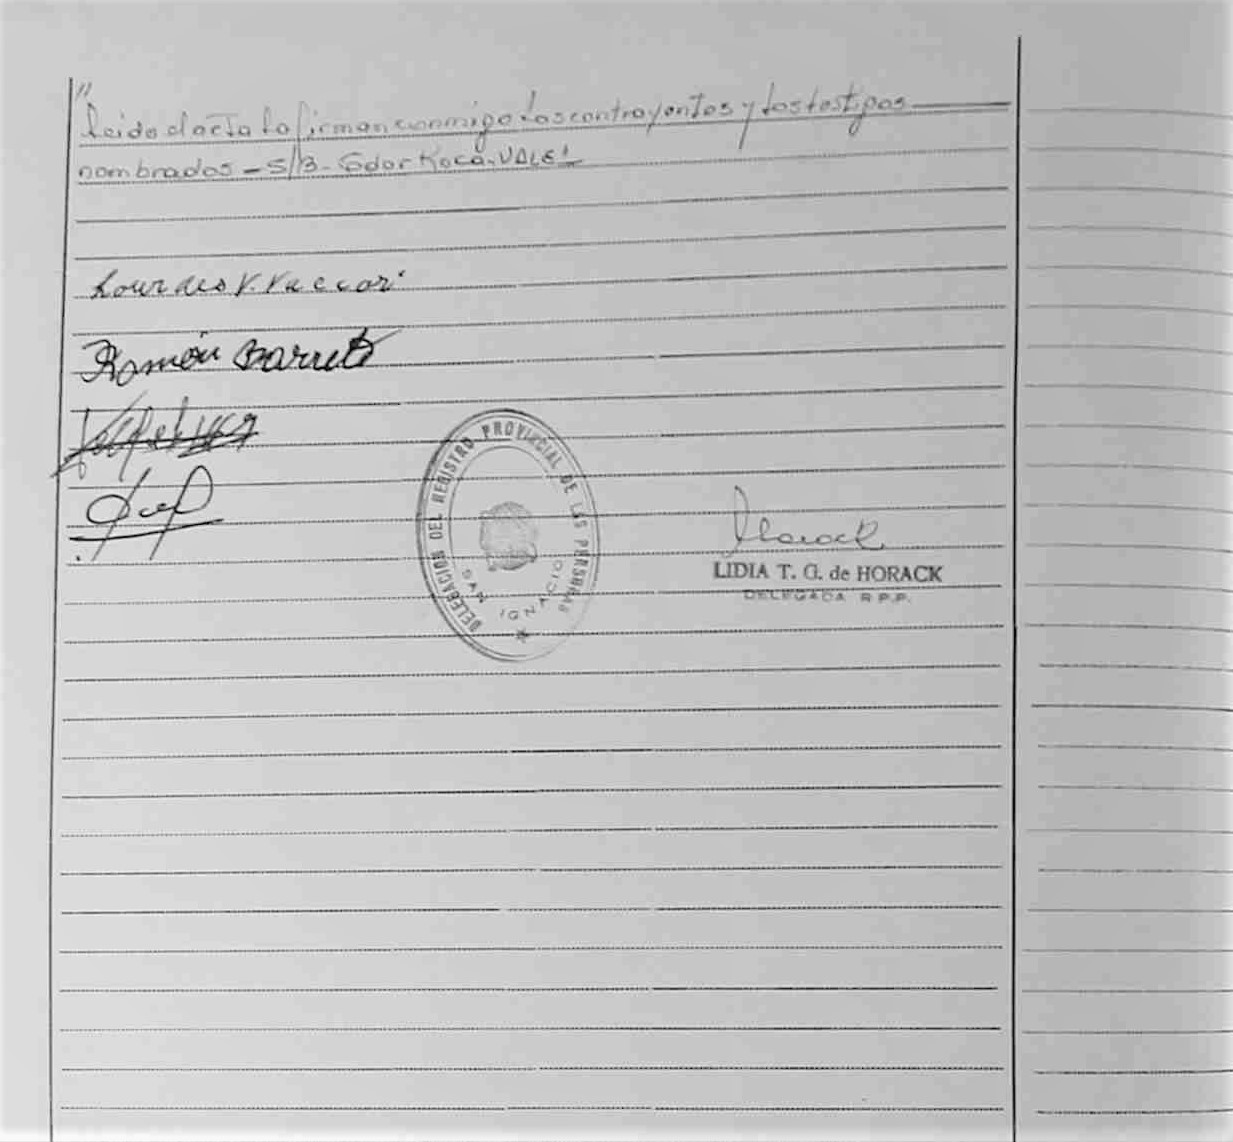 "
Leido el acta la firman conmigo los contrayentes y los testigos
nombrados - S/B - Roca. VALE!
Lourdes V. Vaccari
Ramón Barreto
DELEGACION DEL REGISTRO PROVINCIAL DE LAS PERSONAS
SAN IGNACIO
Horack
LIDIA T. G. de HORACK
DELEGADA R.P.P.